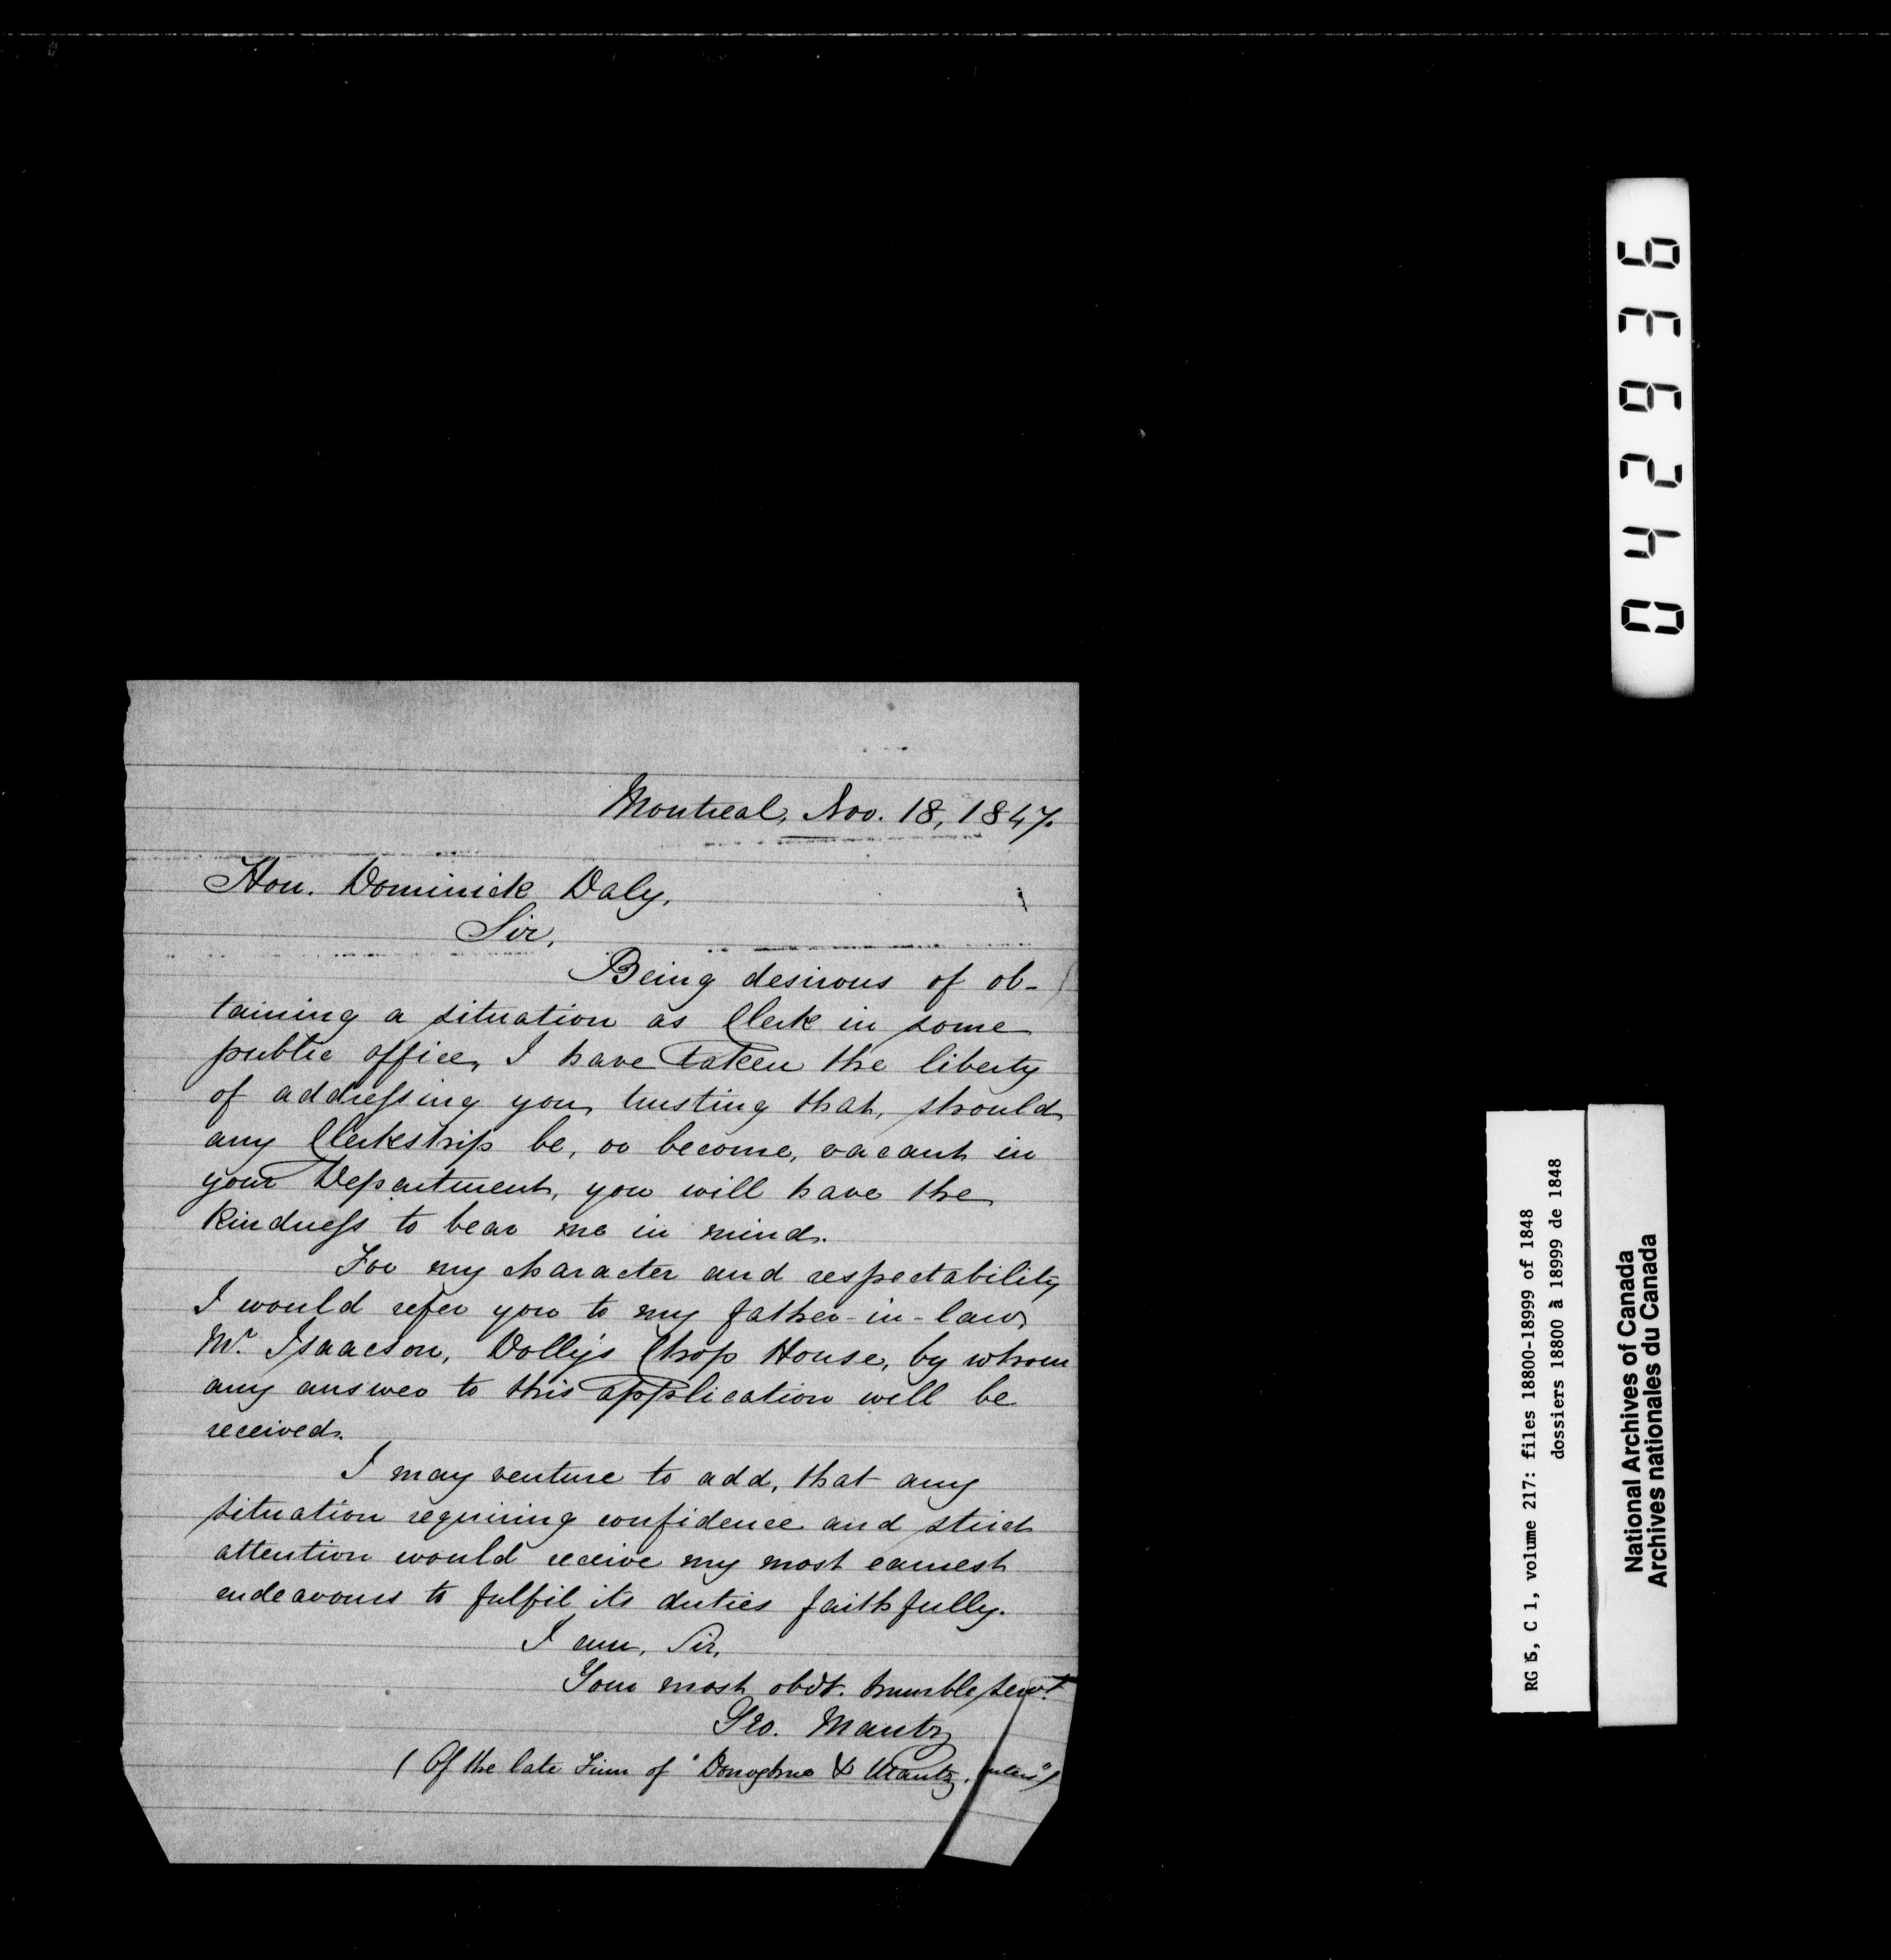 Montreal, Nov. 18, 1847.
Hon. Dominick Daly,
Sir,
Being desirous of ob-
taining a situation as Clerk in some
public office, I have taken the liberty
of addressing you, trusting that, should
any Clerkship be, or become, vacant in
your Department, you will have the
kindness to bear me in mind.
For my character and respectability
I would refer you to my father-in-law,
Mr. Isaacson, Dolly's Chop House, by whom
any answer to this application will be
received.
I may venture to add, that any
situation requiring confidence and strict
attention would receive my most earnest
endeavours to fulfil its duties faithfully.
I am, Sir,
Your most obdt. humble servt.
Geo. Mantz
(Of the late Firm of "Donoghue & Mantz,
042936
RG 5, C 1, volume 217: files 18800-18999 of 1848
dossiers 18800 à 18999 de 1848
National Archives of Canada
Archives nationales du Canada